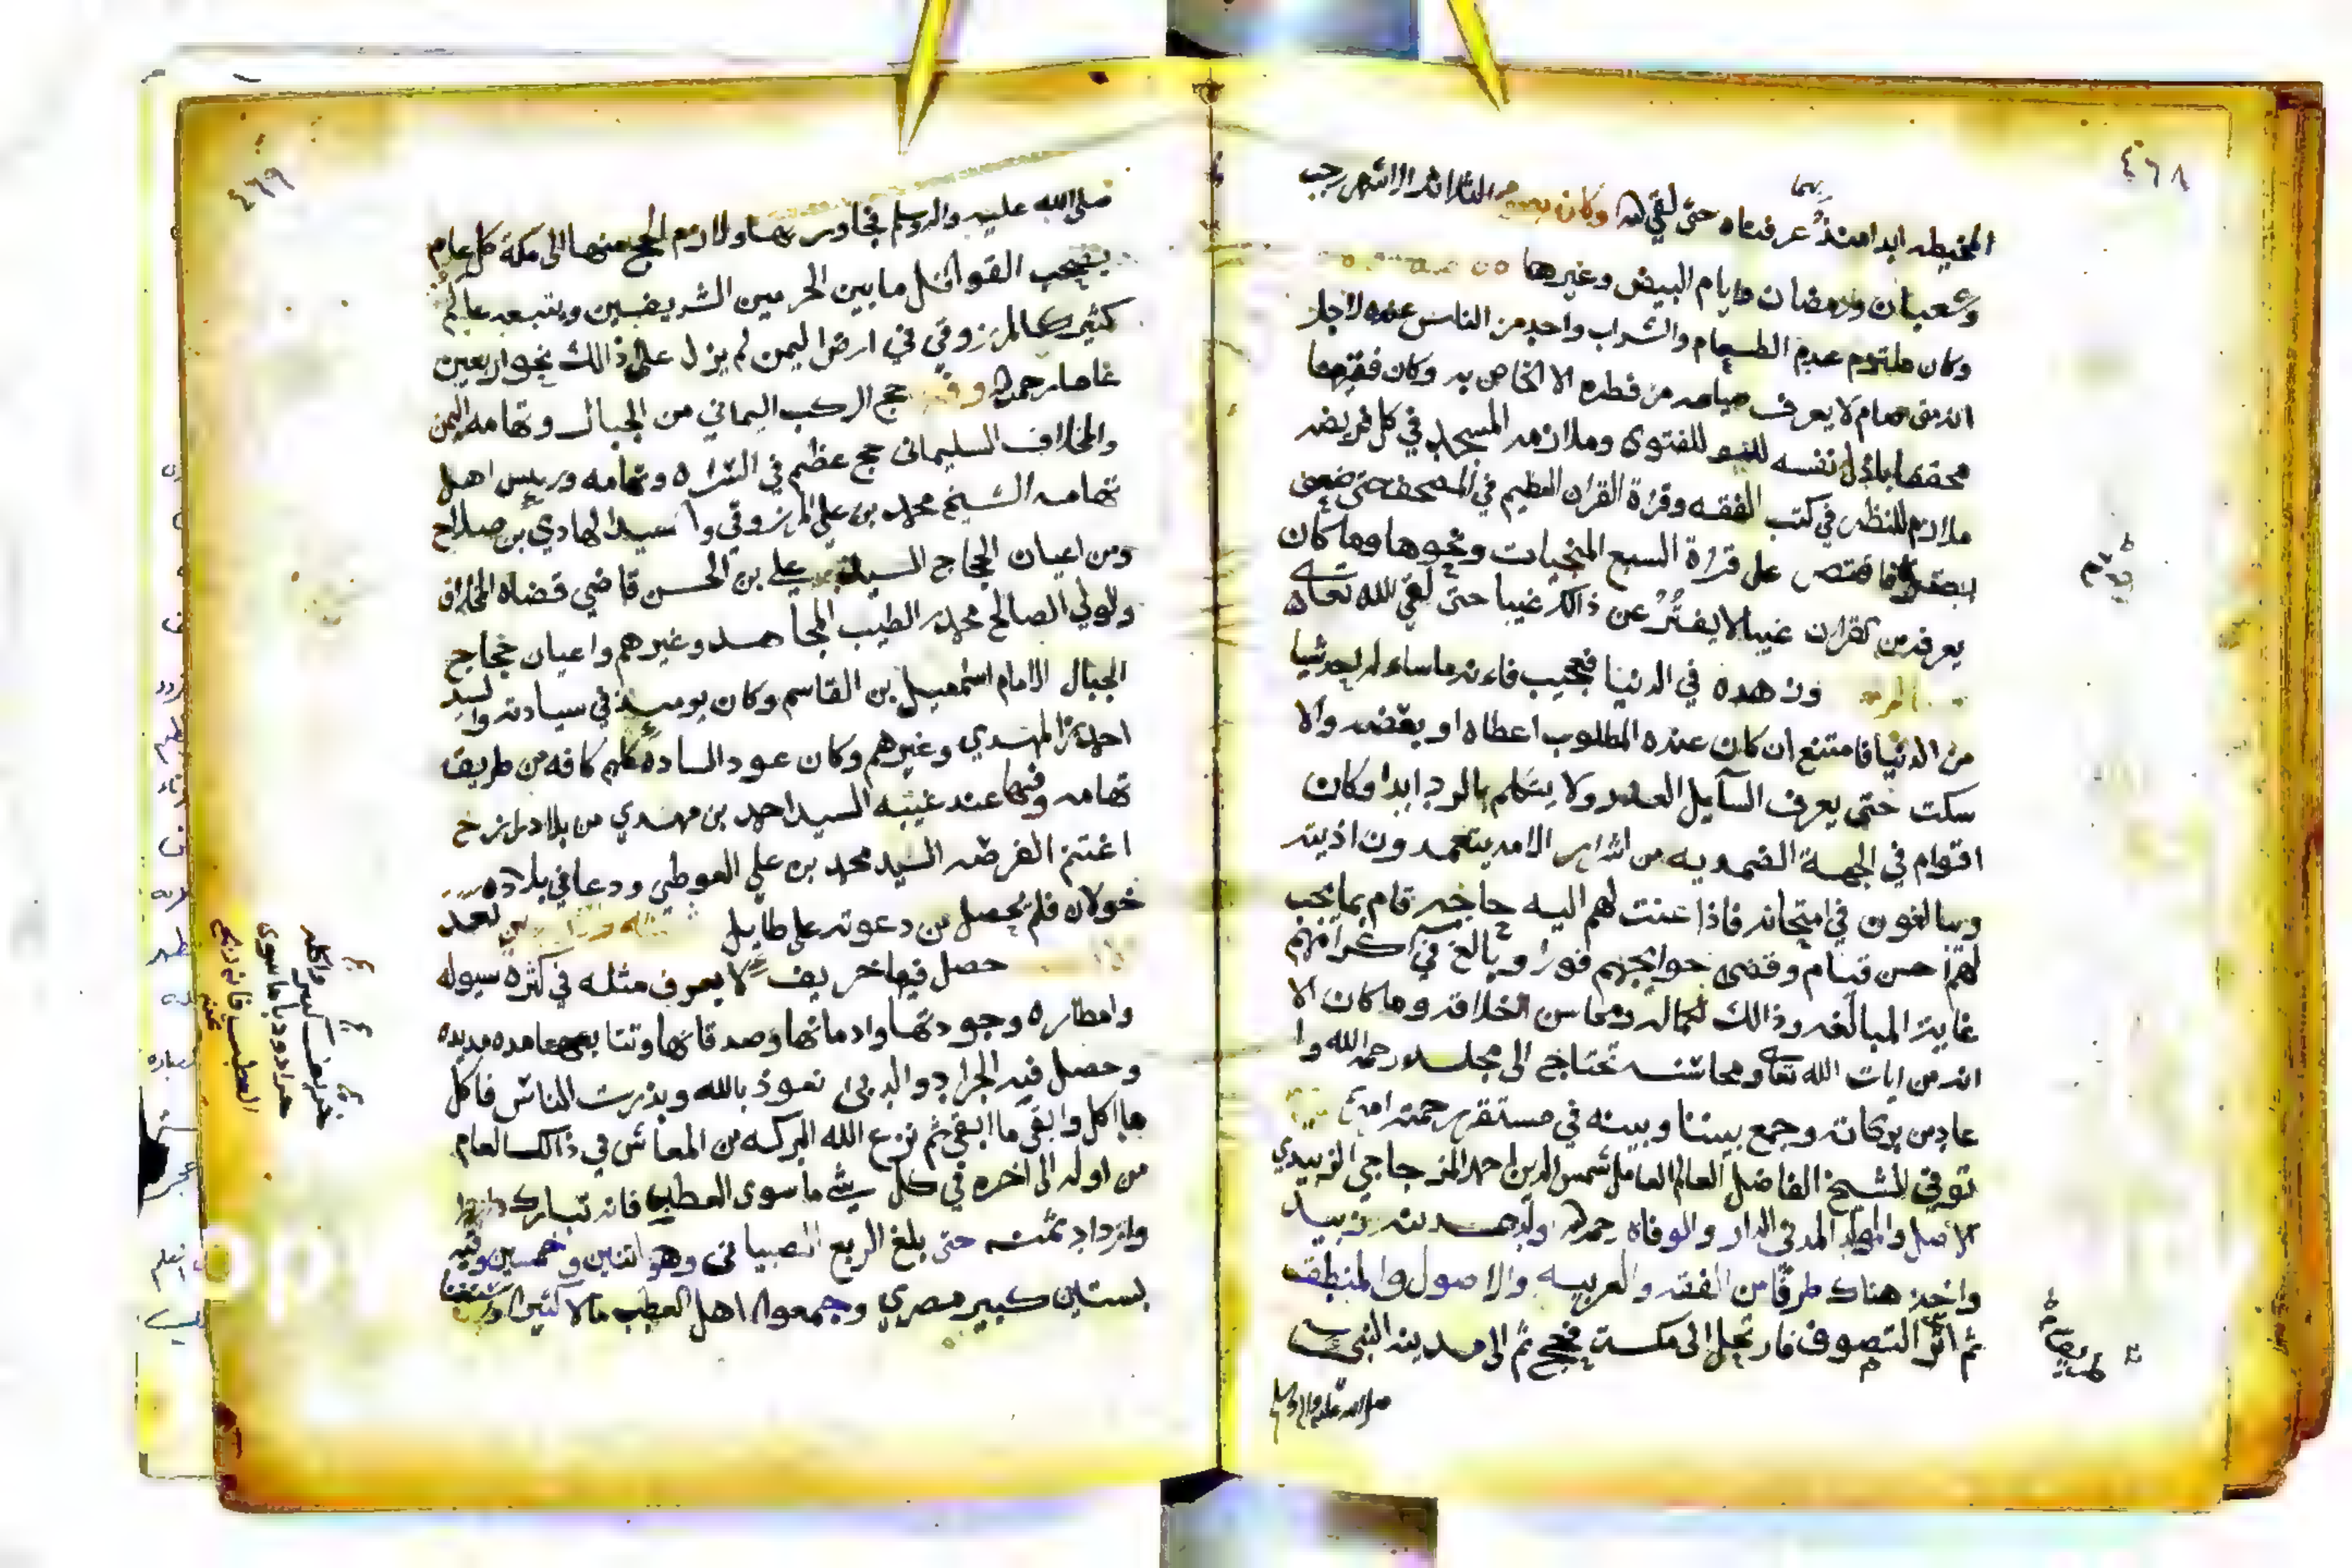 ٤٦٨
المخيطه ابدا منذ عرفناه حتى لقي الله وكان يصوم الثلاثه الاشهر رجب
وشعبان ورمضان وايام البيض وغيرها
وكان ملتزم عدم الطعام والشراب واحد من الناس عنده لاجل
انه متى صام لا يعرف صيامه من فطره الا الخاص به وكان فقيها
محققا باذل نفسه للفتوى وملازمه المسجد في كل فريضه
ملازم للنظر في كتب الفقه وقراة القران العظيم في المصحف حتى ضعف
فاقتصر على قراة السبع المنجيات ونحوها وما كان
يعرفه من القران غيبا لا يفتر عن ذالك غيبا حتى لقي الله تعالى
هده في الدنيا فعجيب فانه ما ساله احد شيا
من الدنيا فامتنع ان كان عنده المطلوب اعطاه او بعضه والا
سكت حتى يعرف السايل العذر ولا يتكلم بالرد ابدا وكان
اقوام في الجهة الضمديه من اشرار الامه يتعمدون اذيته
ويبالغون في امتحانه فاذا عنت لهم اليه حاجه قام بما يجب
لهم احسن قيام وقضى حوايجهم فورا وبالغ في اكرامهم
غاية المبالغه وذالك لكماله ومحاسن اخلاقه وما كان الا
انه من ايات الله تعالى ومحاسنه تحتاج الى مجلد رحمه الله وا
عاد من بركاته وجمع بيننا وبينه في مستقر رحمته امين
توفي الشيخ الفاضل العالم العامل شمس الدين احمد المزجاجي الزبيدي
الاصل والمولد المدني الدار والوفاه رحمه الله ولد بمدينة زبيد
واخذ هناك طرفا من الفقه والعربيه والاصول والمنطق
ثم اثر التصوف فارتحل الى مكة فحج ثم الى مدينة النبي
صلى الله عليه واله وسلم
٤٦٩
صلى الله عليه واله وسلم فجاور بها ولازم الحج منها الى مكة كل عام
يصحب القوافل ما بين الحرمين الشريفين ويتبعه عالم
كثير كالمرزوقي في ارض اليمن لم يزل على ذالك نحو اربعين
عاما رحمه الله حج الركب اليماني من الجبال وتهامه اليمن
والمخلاف السليماني حج عظيم في السراه وتهامه وريس اهل
تهامه الشيخ محمد بن علي المرزوقي والسيد الهادي بن صلاح
ومن اعيان الحجاج السيد علي بن الحسن قاضي قضاة المخلاف
والولي الصالح محمد الطيب المجاهد وغيرهم واعيان حجاج
الجبال الامام اسمعيل بن القاسم وكان يوميذ في سيادته والسيد
احمد بن المهدي وغيرهم وكان عود الساده كلهم كافه من طريق
تهامه وفيها عند غيبه السيد احمد بن مهدي من بلاد رازح
اغتنم الفرصه السيد محمد بن علي الفوطي ودعا في بلاد
خولان فلم يحصل من دعوته على طايل
حصل فيها خريف لا يعرف مثله في كثرة سيوله
وامطاره وجودتها وادمانها وصدقاتها وتتابعها مده مديده
وحصل فيه الجراد والدبى نعوذ بالله وبذرت الناس فاكل
ما اكل وابقى ما ابقى ثم نزع الله البركه من المعاش في ذالك العام
من اوله الى اخره في كل شي ما سوى العطب فانه تبارك
وازداد ثمنه حتى بلغ الربع الصبياني وهو اثنين وخمسين وقيه
بستين كبير مصري وجمعوا اهل العطب مالا كثيرا
خريف كبير واكله
جراد ودبا ما سوى
العطب فانه